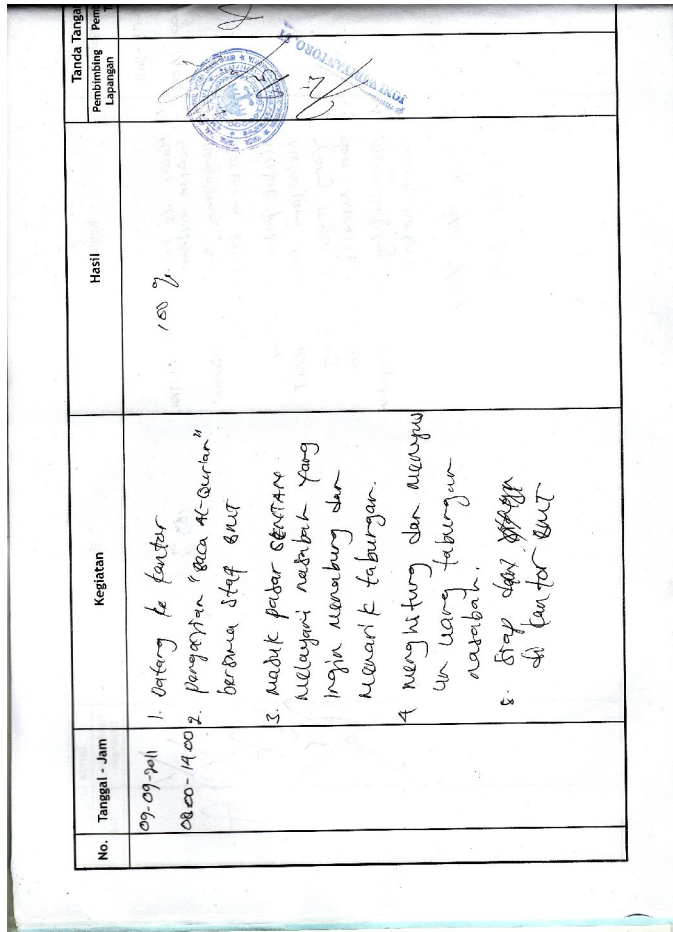 No.
Tanggal - Jam
Kegiatan
Hasil
Tanda Tangan
Pembimbing
Lapangan
Pem
09-09-2011
08.00 - 14.00
1. Datang ke kantor
2. pengajian "Baca Al-Qur'an"
bersama staf BMT
3. Masuk pasar
melayani nasabah yang
ingin menabung dan
menarik tabungan.
4 menghitung dan menyu
un uang tabungan
nasabah.
di kantor BMT
100 %
JONI WIDIYANTORO, ST